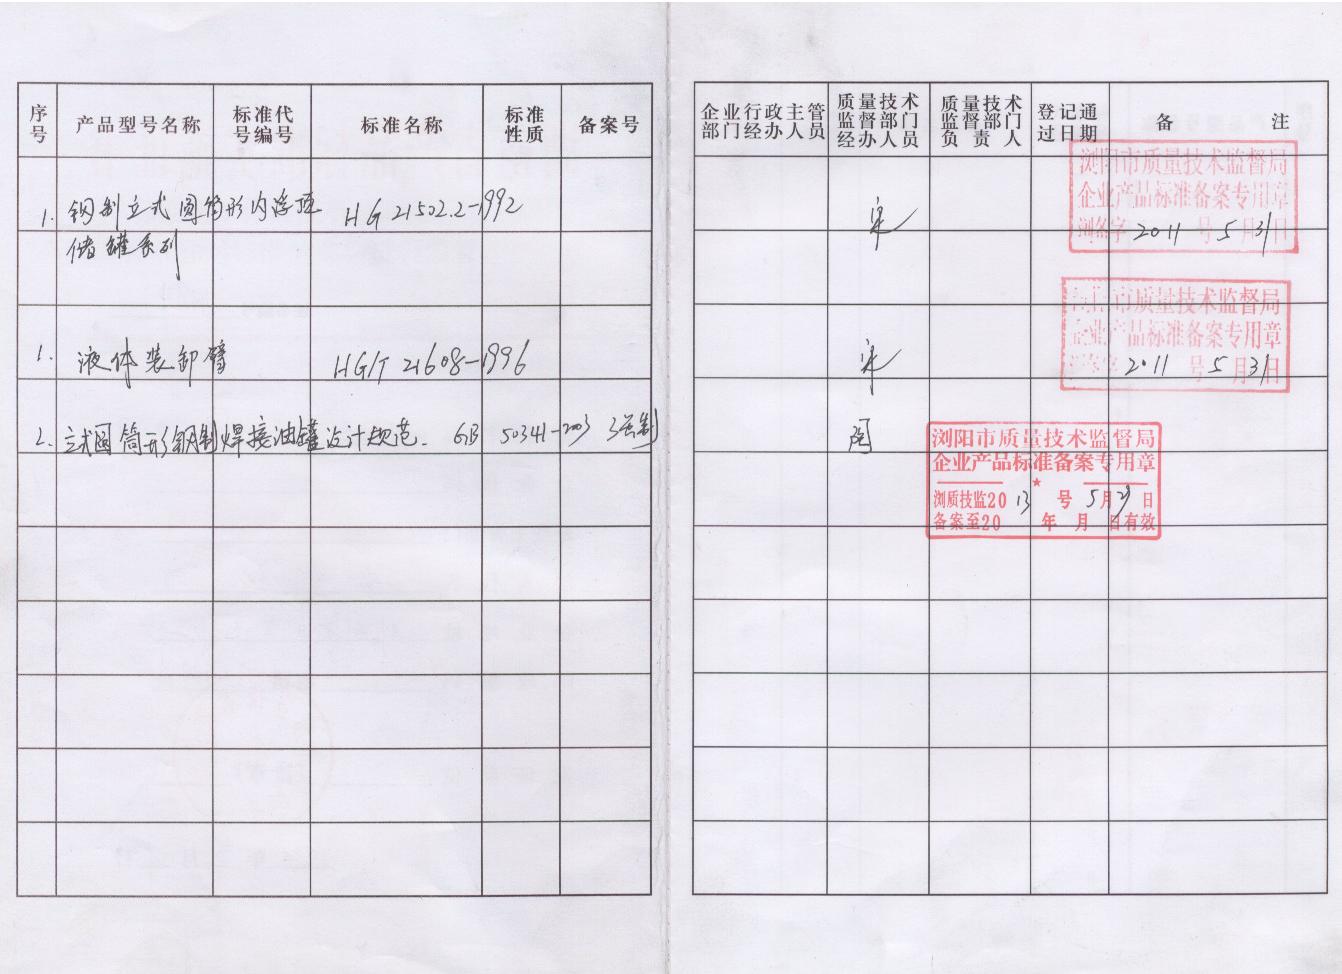 序号 产品型号名称 标准代号编号 标准名称 标准性质 备案号
1. 钢制立式圆筒形内浮顶 HG 21502.2-1992
储罐系列
1. 液体装卸臂 HG/T 21608-1996
2. 立式圆筒形钢制焊接油罐设计规范. GB 50341-2003 强制
企业行政主管部门经办人员 质量技术监督部门经办人员 质量技术监督部门负责人 登记通过日期 备注
浏阳市质量技术监督局
企业产品标准备案专用章
浏备字 2011 号 5月31日
宋
市质量技术监督局
企业产品标准备案专用章
2011 号 5月31日
宋
浏阳市质量技术监督局
企业产品标准备案专用章
浏质技监2013 号 5月29日
备案至20 年 月 日有效